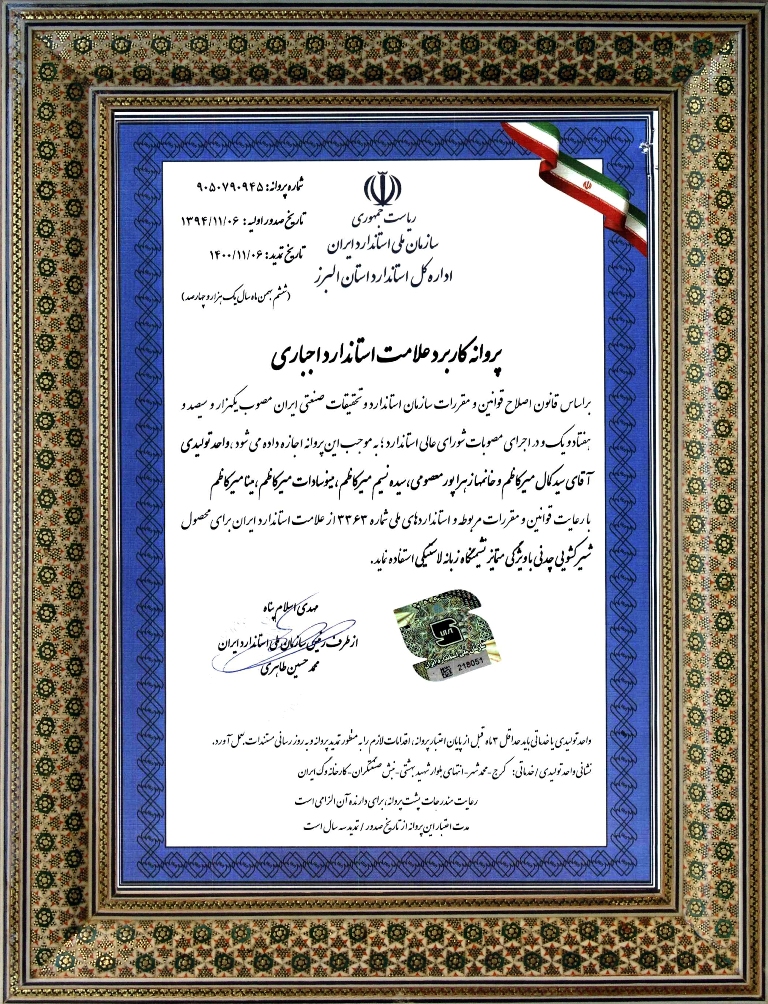 شماره پروانه: ۹۰۵۰۷۹۰۹۴۵
تاریخ صدور اولیه: ۱۳۹۴/۱۱/۰۶
تاریخ تمدید: ۱۴۰۰/۱۱/۰۶
(ششم بهمن ماه سال یک هزار و چهارصد)
ریاست جمهوری
سازمان ملی استاندارد ایران
اداره کل استاندارد استان البرز
پروانه کاربرد علامت استاندارد اجباری
براساس قانون اصلاح قوانین و مقررات سازمان استاندارد و تحقیقات صنعتی ایران مصوب یکهزار و سیصد و
هفتاد و یک و در اجرای مصوبات شورای عالی استاندارد ؛ به موجب این پروانه اجازه داده می شود ،واحد تولیدی
آقای سید کمال میرکاظم و خانمها زهرا پور معصومی، سیده نسیم میرکاظم، مینوسادات میرکاظم ، مینا میرکاظم
با رعایت قوانین و مقررات مربوطه و استانداردهای ملی شماره ۳۳۶۳ از علامت استاندارد ایران برای محصول
شیر کشویی چدنی با ویژگی متمایز نشیمنگاه زبانه لاستیکی استفاده نماید.
مهدی اسلام پناه
از طرف رئیس سازمان ملی استاندارد ایران
محمد حسین طاهری
218051
واحد تولیدی یا خدماتی باید حداقل ۳ ماه قبل از پایان اعتبار پروانه، اقدامات لازم را به منظور تمدید پروانه و به روز رسانی مستندات، بعمل آورد.
نشانی واحد تولیدی / خدماتی: کرج - محمدشهر - انتهای بلوار شهید بهشتی - نبش صنعتگران - کارخانه وگ ایران
رعایت مندرجات پشت پروانه، برای دارنده آن الزامی است
مدت اعتبار این پروانه از تاریخ صدور / تمدید سه سال است